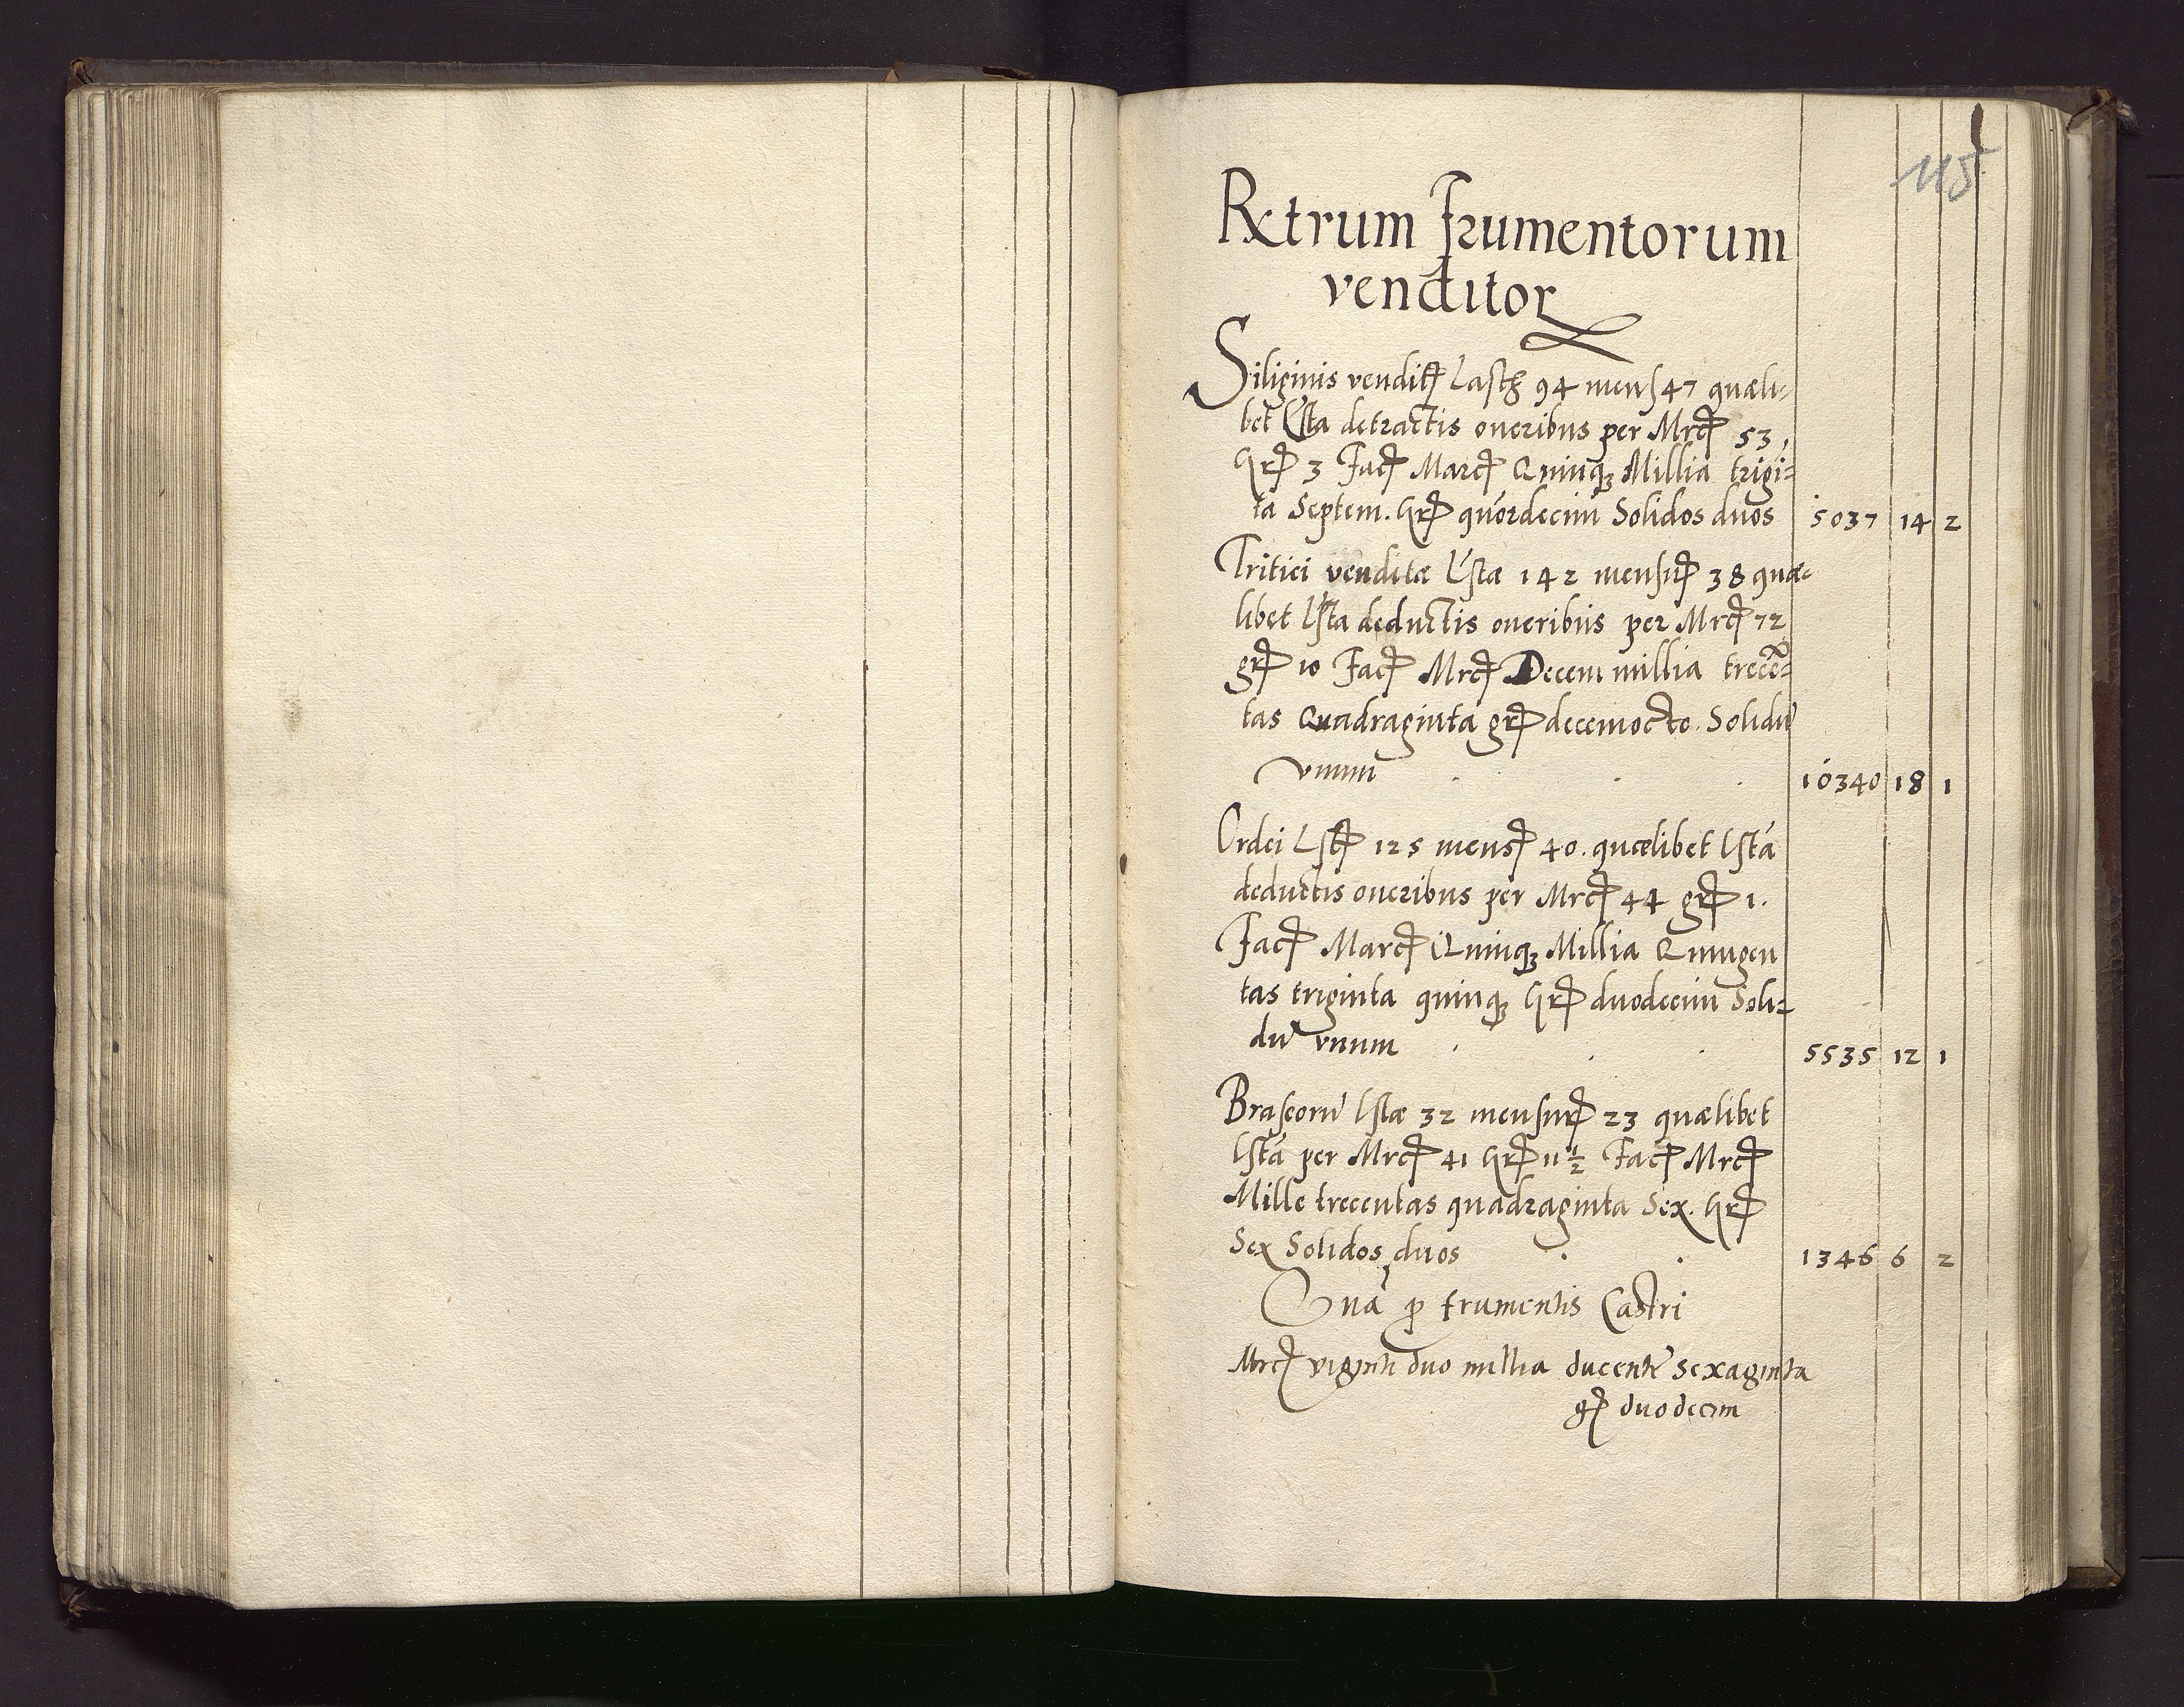 115
Rxtrum Frumentorum
venditor
Siliginis vendit Lasth 94 mens 47 quæli-
bet Lsta detractis oneribus per Mrc 53,
Gr 3 Fac Marc Quinq Millia trigi-
ta Septem. Gr quórdecim Solidos duos 5037 14 2
Tritici venditæ Lstæ 142 mensur 38 quæ-
libet Lsta deductis oneribus per Mrc 72
gr 10 Fac Mrc Decem millia trecē-
tas Quadraginta gr decemocto. Solidū
vnum 10340 18 1
Ordei Lst 125 mens 40. quælibet Lsta
deductis oneribus per Mrc 44 gr 1.
Fac Marc Quinq Millia Quingen
tas triginta quinq Gr duodecim Soli-
dū vnum 5535 12 1
Braseorū Lstæ 32 mensur 23 quælibet
Lsta per Mrc 41 Gr 11 1/2 Fac Mrc
Mille trecentas quadraginta Sex. Gr
Sex Solidos duos 1346 6 2
Sūā p frumentis Castri
Mrc viginti duo millia ducentē sexaginta
g duodecim